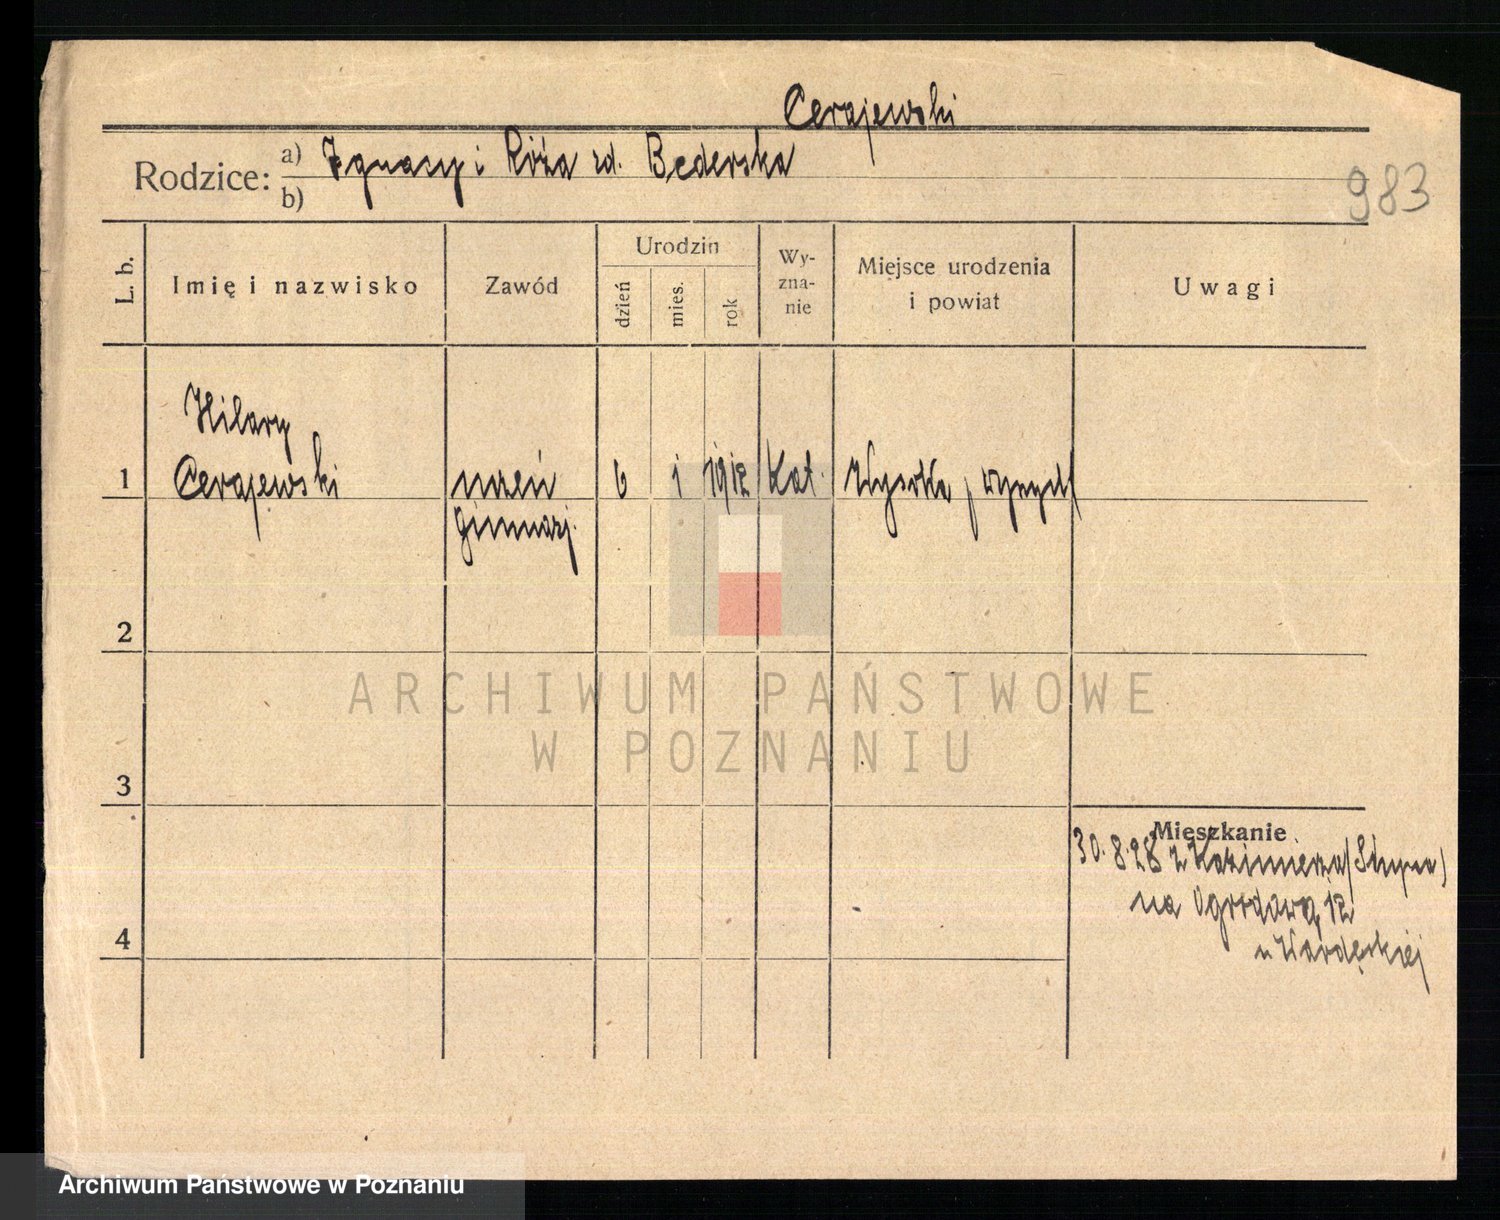 Cerajewski
Rodzice: a) Ignacy i Róża zd. Bederska
b)
983
L. b.
Imię i nazwisko
Zawód
Urodzin
dzień
mies.
rok
Wy-
zna-
nie
Miejsce urodzenia
i powiat
Uwagi
Hilary
1 Cerajewski uczeń 6 1 1912 Kat.
gimnazj.
2
3
4
Mieszkanie
30.8.28 z Kazimierza (Słupca)
na Ogrodową 12
ARCHIWUM PAŃSTWOWE
W POZNANIU
Archiwum Państwowe w Poznaniu